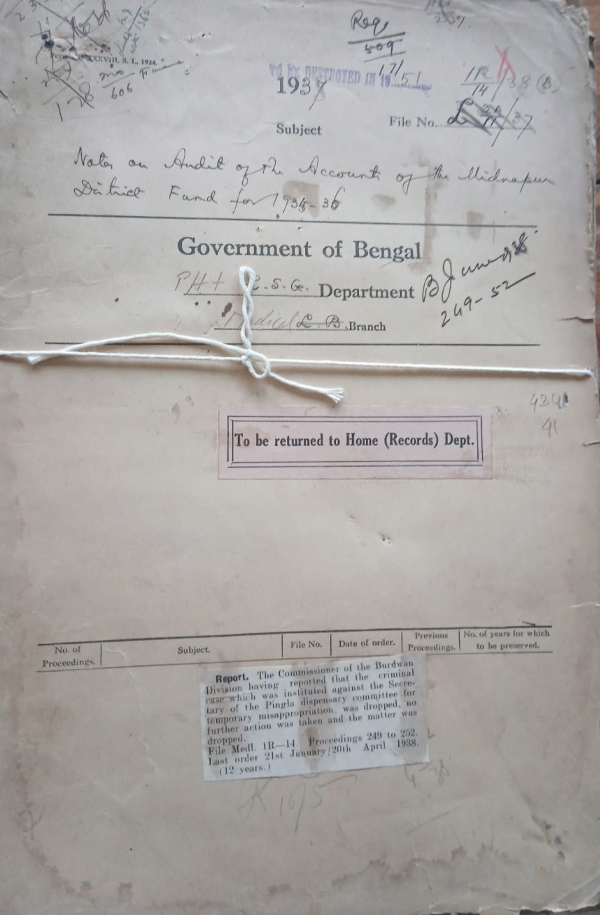 Req
509
17/51
XXXVIII, S. I., 1924.
606
128
TO BE DESTROYED IN 19
193
1R
14/38 (B)
Subject
File No.
Notes on Audit of the Accounts of the Midnapur
District Fund for 1935-36
Government of Bengal
PH + L.S.G. Department
B June 38
249-52
Medical L. B. Branch
To be returned to Home (Records) Dept.
41
No. of
Proceedings.
Subject.
File No.
Date of order.
Previous
Proceedings.
No. of years for which
to be preserved.
Report. The Commissioner of the Burdwan
Division having reported that the criminal
case which was instituted against the Secre-
tary of the Pingla dispensary committee for
temporary misappropriation, was dropped, no
further action was taken and the matter was
dropped.
File Medl. 1R—14. Proceedings 249 to 252.
Last order 21st January/20th April 1938.
(12 years.)